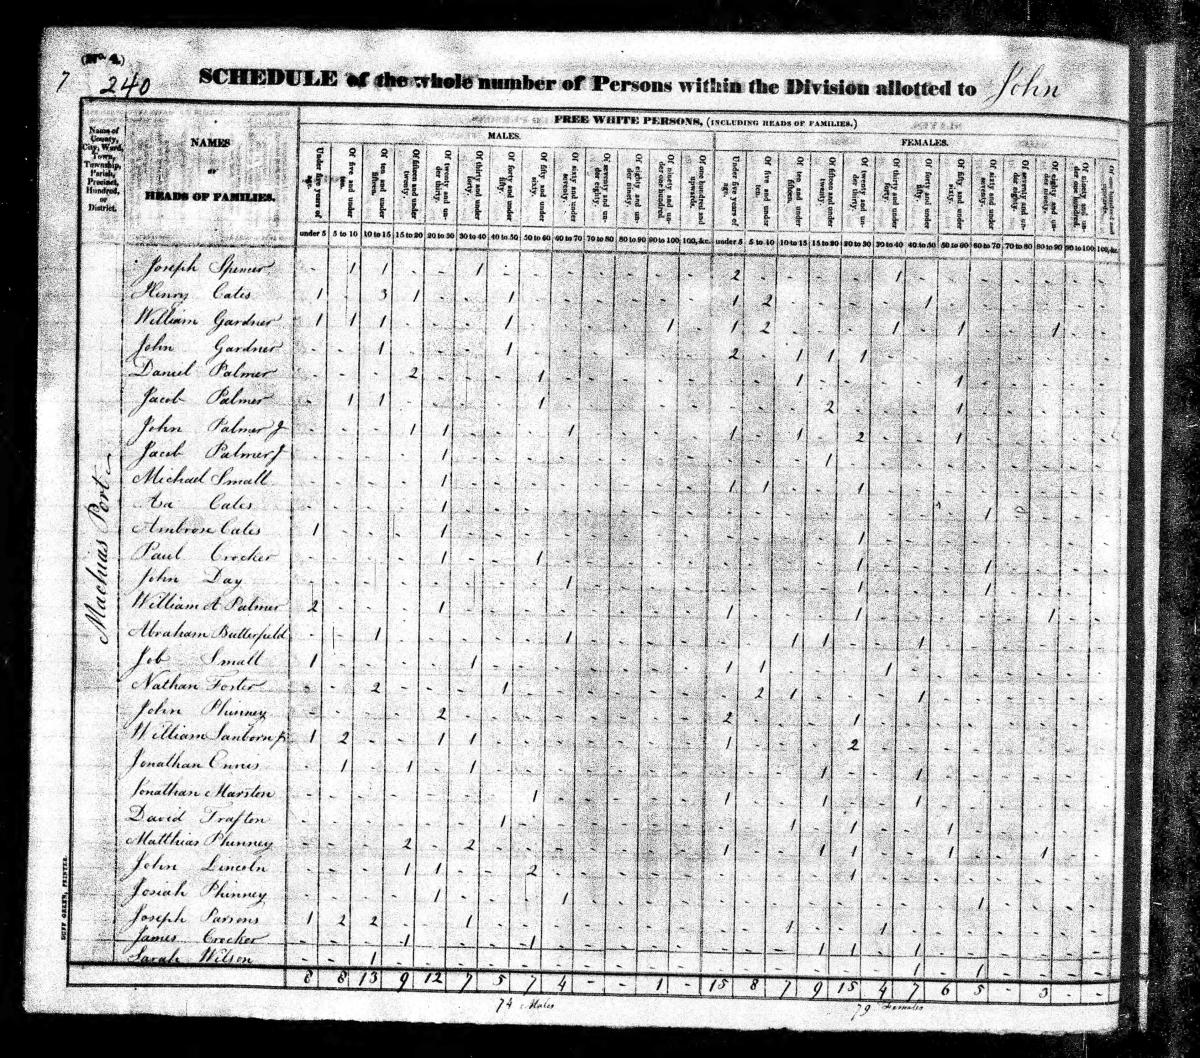 (No. 4.)
7 240 SCHEDULE of the whole number of Persons within the Division allotted to John
FREE WHITE PERSONS, (INCLUDING HEADS OF FAMILIES.)
MALES. FEMALES.
Name of County, City, Ward, Town, Township, Parish, Precinct, Hundred, or District.
NAMES
OF
HEADS OF FAMILIES.
Under five years of age. Of five and under ten. Of ten and under fifteen. Of fifteen and under twenty. Of twenty and under thirty. Of thirty and under forty. Of forty and under fifty. Of fifty and under sixty. Of sixty and under seventy. Of seventy and under eighty. Of eighty and under ninety. Of ninety and under one hundred. Of one hundred and upwards. Under five years of age. Of five and under ten. Of ten and under fifteen. Of fifteen and under twenty. Of twenty and under thirty. Of thirty and under forty. Of forty and under fifty. Of fifty and under sixty. Of sixty and under seventy. Of seventy and under eighty. Of eighty and under ninety. Of ninety and under one hundred. Of one hundred and upwards.
under 5 5 to 10 10 to 15 15 to 20 20 to 30 30 to 40 40 to 50 50 to 60 60 to 70 70 to 80 80 to 90 90 to 100 100, &c. under 5 5 to 10 10 to 15 15 to 20 20 to 30 30 to 40 40 to 50 50 to 60 60 to 70 70 to 80 80 to 90 90 to 100 100, &c.
Machias Port
Joseph Spencer - 1 1 - - 1 - - - - - - - 2 - - - - 1 - - - - - - -
Henry Cates 1 - 3 1 - - 1 - - - - - - 1 2 - - - - 1 - - - - - -
William Gardner 1 1 1 - - - 1 - - - - 1 - 1 2 - - - 1 - 1 - - 1 - -
John Gardner - - 1 - - - 1 - - - - - - 2 - 1 1 1 - - - - - - - -
Daniel Palmer - - - 2 - - - 1 - - - - - - - 1 - - - - 1 - - - - -
Jacob Palmer - 1 1 - - - - 1 - - - - - - - - 2 - - - 1 - - - - -
John Palmer J - - - 1 1 - - - 1 - - - - 1 - 1 - 2 - - 1 - - - - -
Jacob Palmer J - - - - 1 - - - - - - - - - - - 1 - - - - - - - - -
Michael Small - - - - 1 - - - - - - - - 1 1 - - 1 - - - - - - - -
Asa Cates - - - - 1 - - - - - - - - - - - - - - - - 1 - - - -
Ambrose Cates 1 - - - 1 - - - - - - - - - - - - 1 - - - - - - - -
Paul Crocker - - - - 1 - - 1 - - - - - - - - - 1 - - - 1 - - - -
John Day - - - - - - - - 1 - - - - - - - - 1 - - - 1 - - - -
William A Palmer 2 - - - 1 - - - - - - - - 1 - - - 1 - - - - - 1 - -
Abraham Butterfield - - 1 - - - - - 1 - - - - - - 1 1 - - 1 - - - - - -
Job Small 1 - - - - 1 - - - - - - - 1 1 - - - 1 - - - - - - -
Nathan Foster - - 2 - - - 1 - - - - - - - 2 1 - - - 1 - - - - - -
John Phinney - - - - 2 - - - - - - - - 2 - - - 1 - - - - - - - -
William Sanborn Jr 1 2 - - 1 1 - - - - - - - 1 - - - 2 - - - - - - - -
Jonathan Ennis - 1 - 1 - 1 - - - - - - - - - - 1 - - 1 - - - - - -
Jonathan Marston - - - - - - - 1 - - - - - 1 - - 1 - - 1 - - - - - -
David Trafton - - - - - - 1 - - - - - - - - 1 - 1 - - 1 - - - - -
Matthias Phinney - - - 2 - 2 - - - - - - - 1 - - 1 1 - - 1 - - 1 - -
John Lincoln - - - 1 1 - - 2 - - - - - - - - - 1 - - - - - - - -
Josiah Phinney - - - - 1 - - - 1 - - - - - - - - - - - - 1 - - - -
Joseph Parsons 1 2 2 - - 1 - - - - - - - - - 1 - - 1 - - - - - - -
James Crocker - - - 1 - - - 1 - - - - - - - - 1 1 - 1 - - - - - -
Sarah Wilson - - 1 - - - - - - - - - - - - - - - - 1 - 1 - - - -
8 8 13 9 12 7 5 7 4 - - 1 - 15 8 7 9 15 4 7 6 5 - 3 - -
74 Males 79 Females
DUFF GREEN, PRINTER.